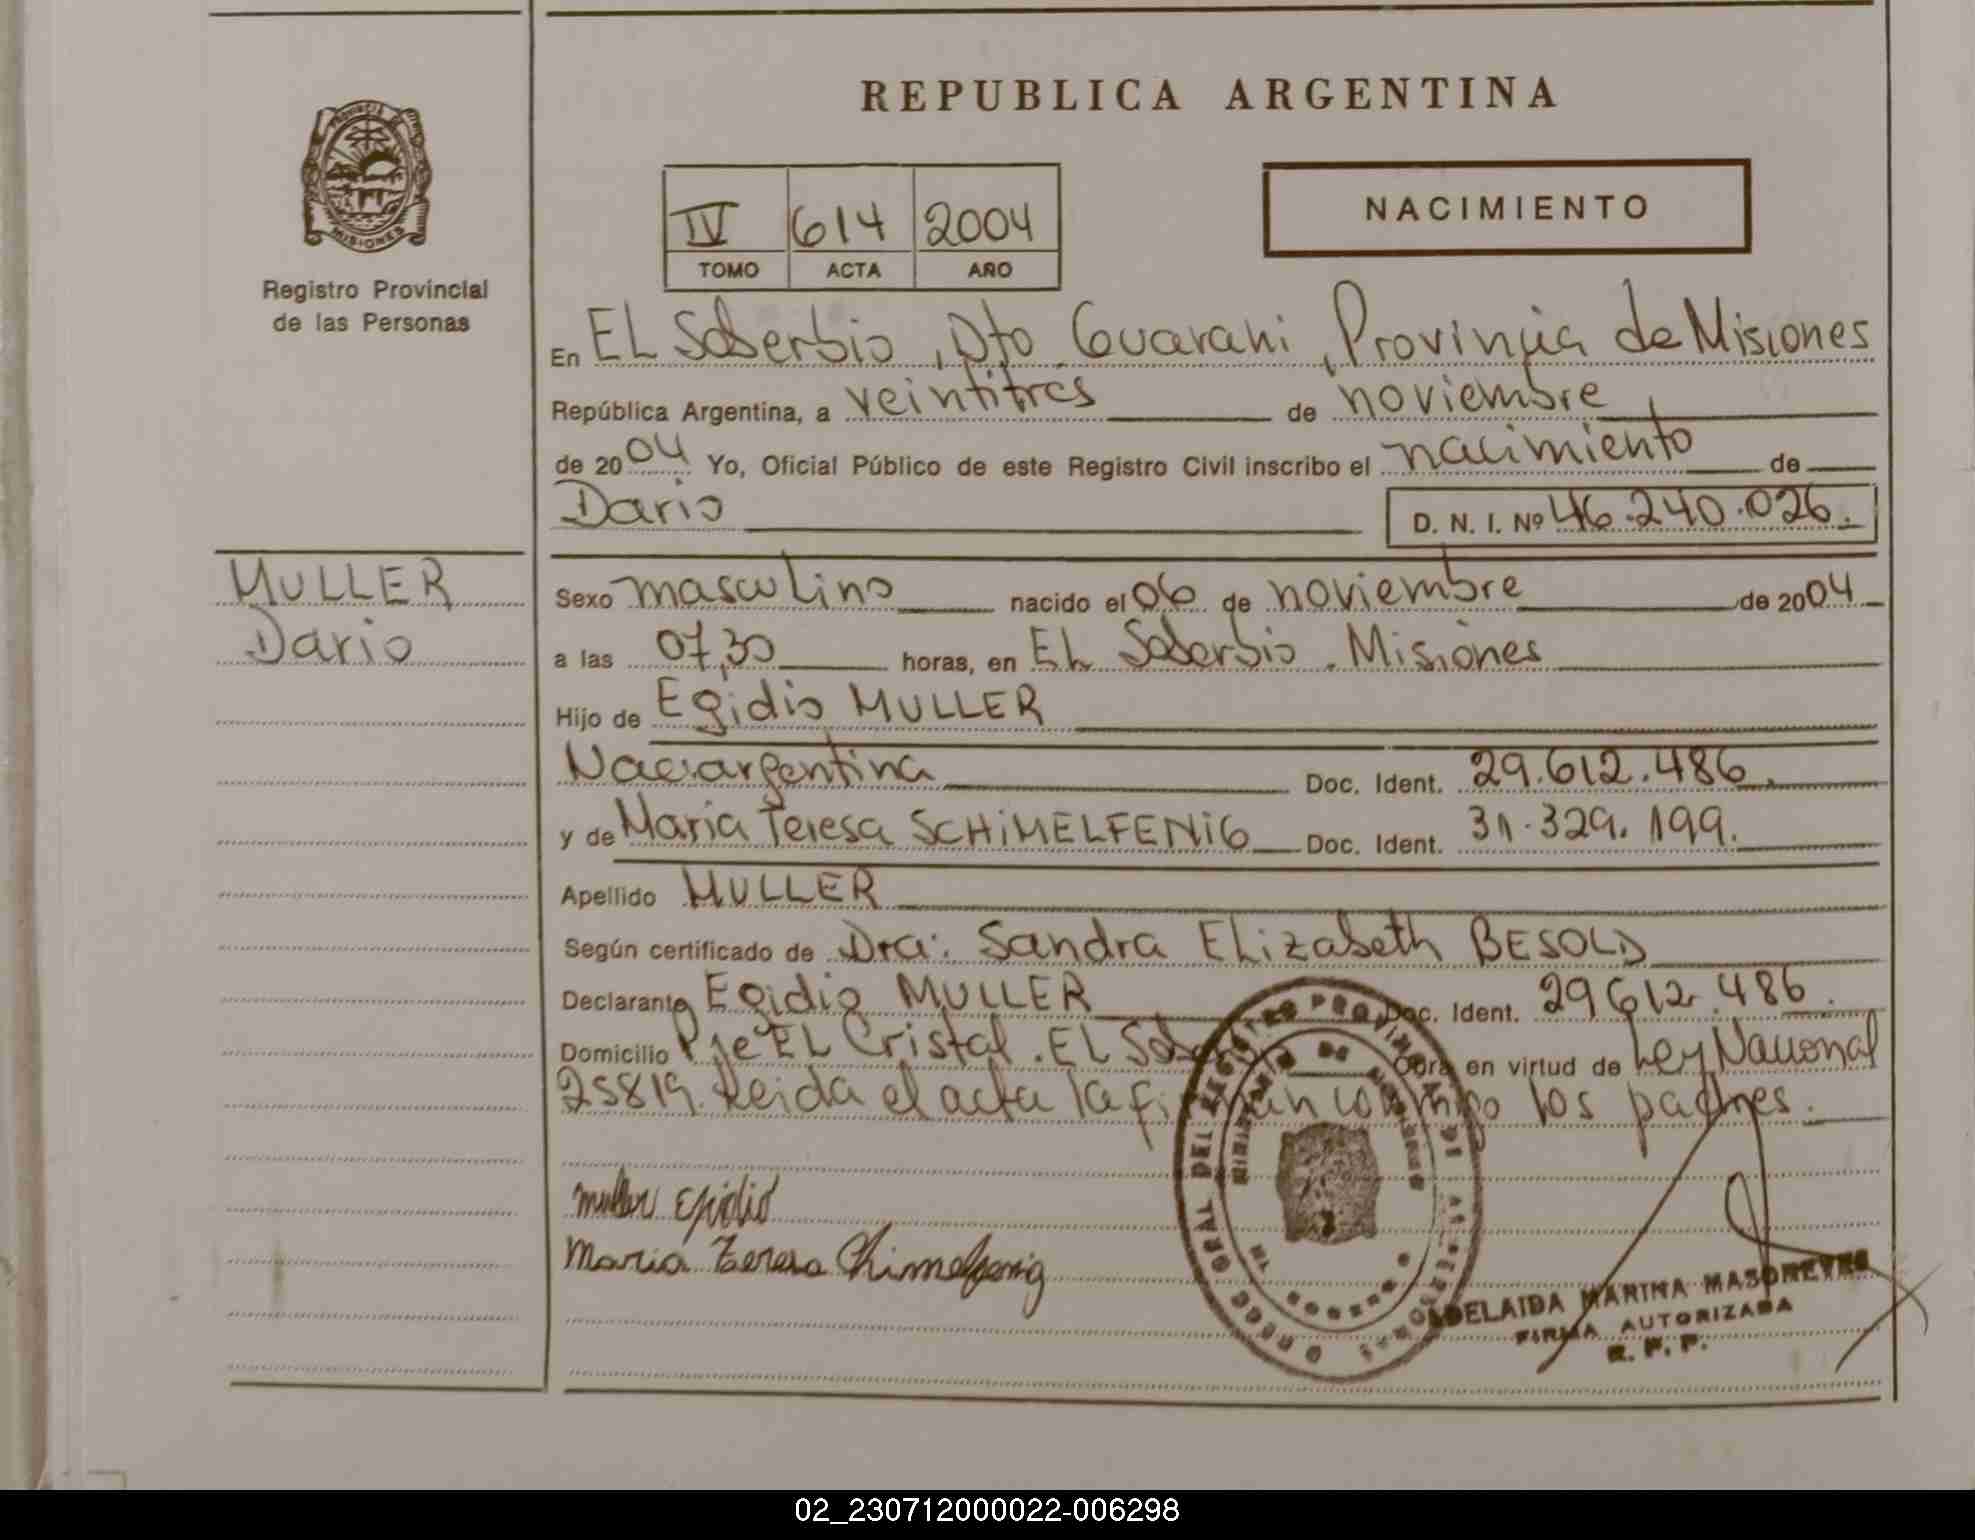 REPUBLICA ARGENTINA
PROVINCIA DE
MISIONES
Registro Provincial
de las Personas
IV 614 2004
TOMO ACTA AÑO
NACIMIENTO
En EL Soberbio, Dto. Guarani, Provincia de Misiones
República Argentina, a veintitres de noviembre,
de 2004 Yo, Oficial Público de este Registro Civil inscribo el nacimiento de
Dario D. N. I. Nº 46.240.026.
MULLER
Dario
Sexo masculino nacido el 06 de noviembre de 2004
a las 07,30 horas, en EL Soberbio. Misiones
Hijo de Egidio MULLER
Nac: argentina Doc. Ident. 29.612.486.
y de Maria Teresa SCHiMELFENiG Doc. Ident. 31.329.199.
Apellido MULLER
Según certificado de Dra: Sandra ELizabeth BESOLD
Declarante Egidio MULLER Doc. Ident. 29612.486.
Domicilio Pje EL Cristal. EL Obra en virtud de Ley Nacional
25819. Leida el acta la firman conmigo los padres.
muller Egidio
Maria Teresa Chimelfenig
DEL REGISTRO PROVINCIAL DE LAS PERSONAS
MINISTERIO DE GOBIERNO
ADELAIDA MARINA
FIRMA AUTORIZADA
R. P. P.
02_230712000022-006298